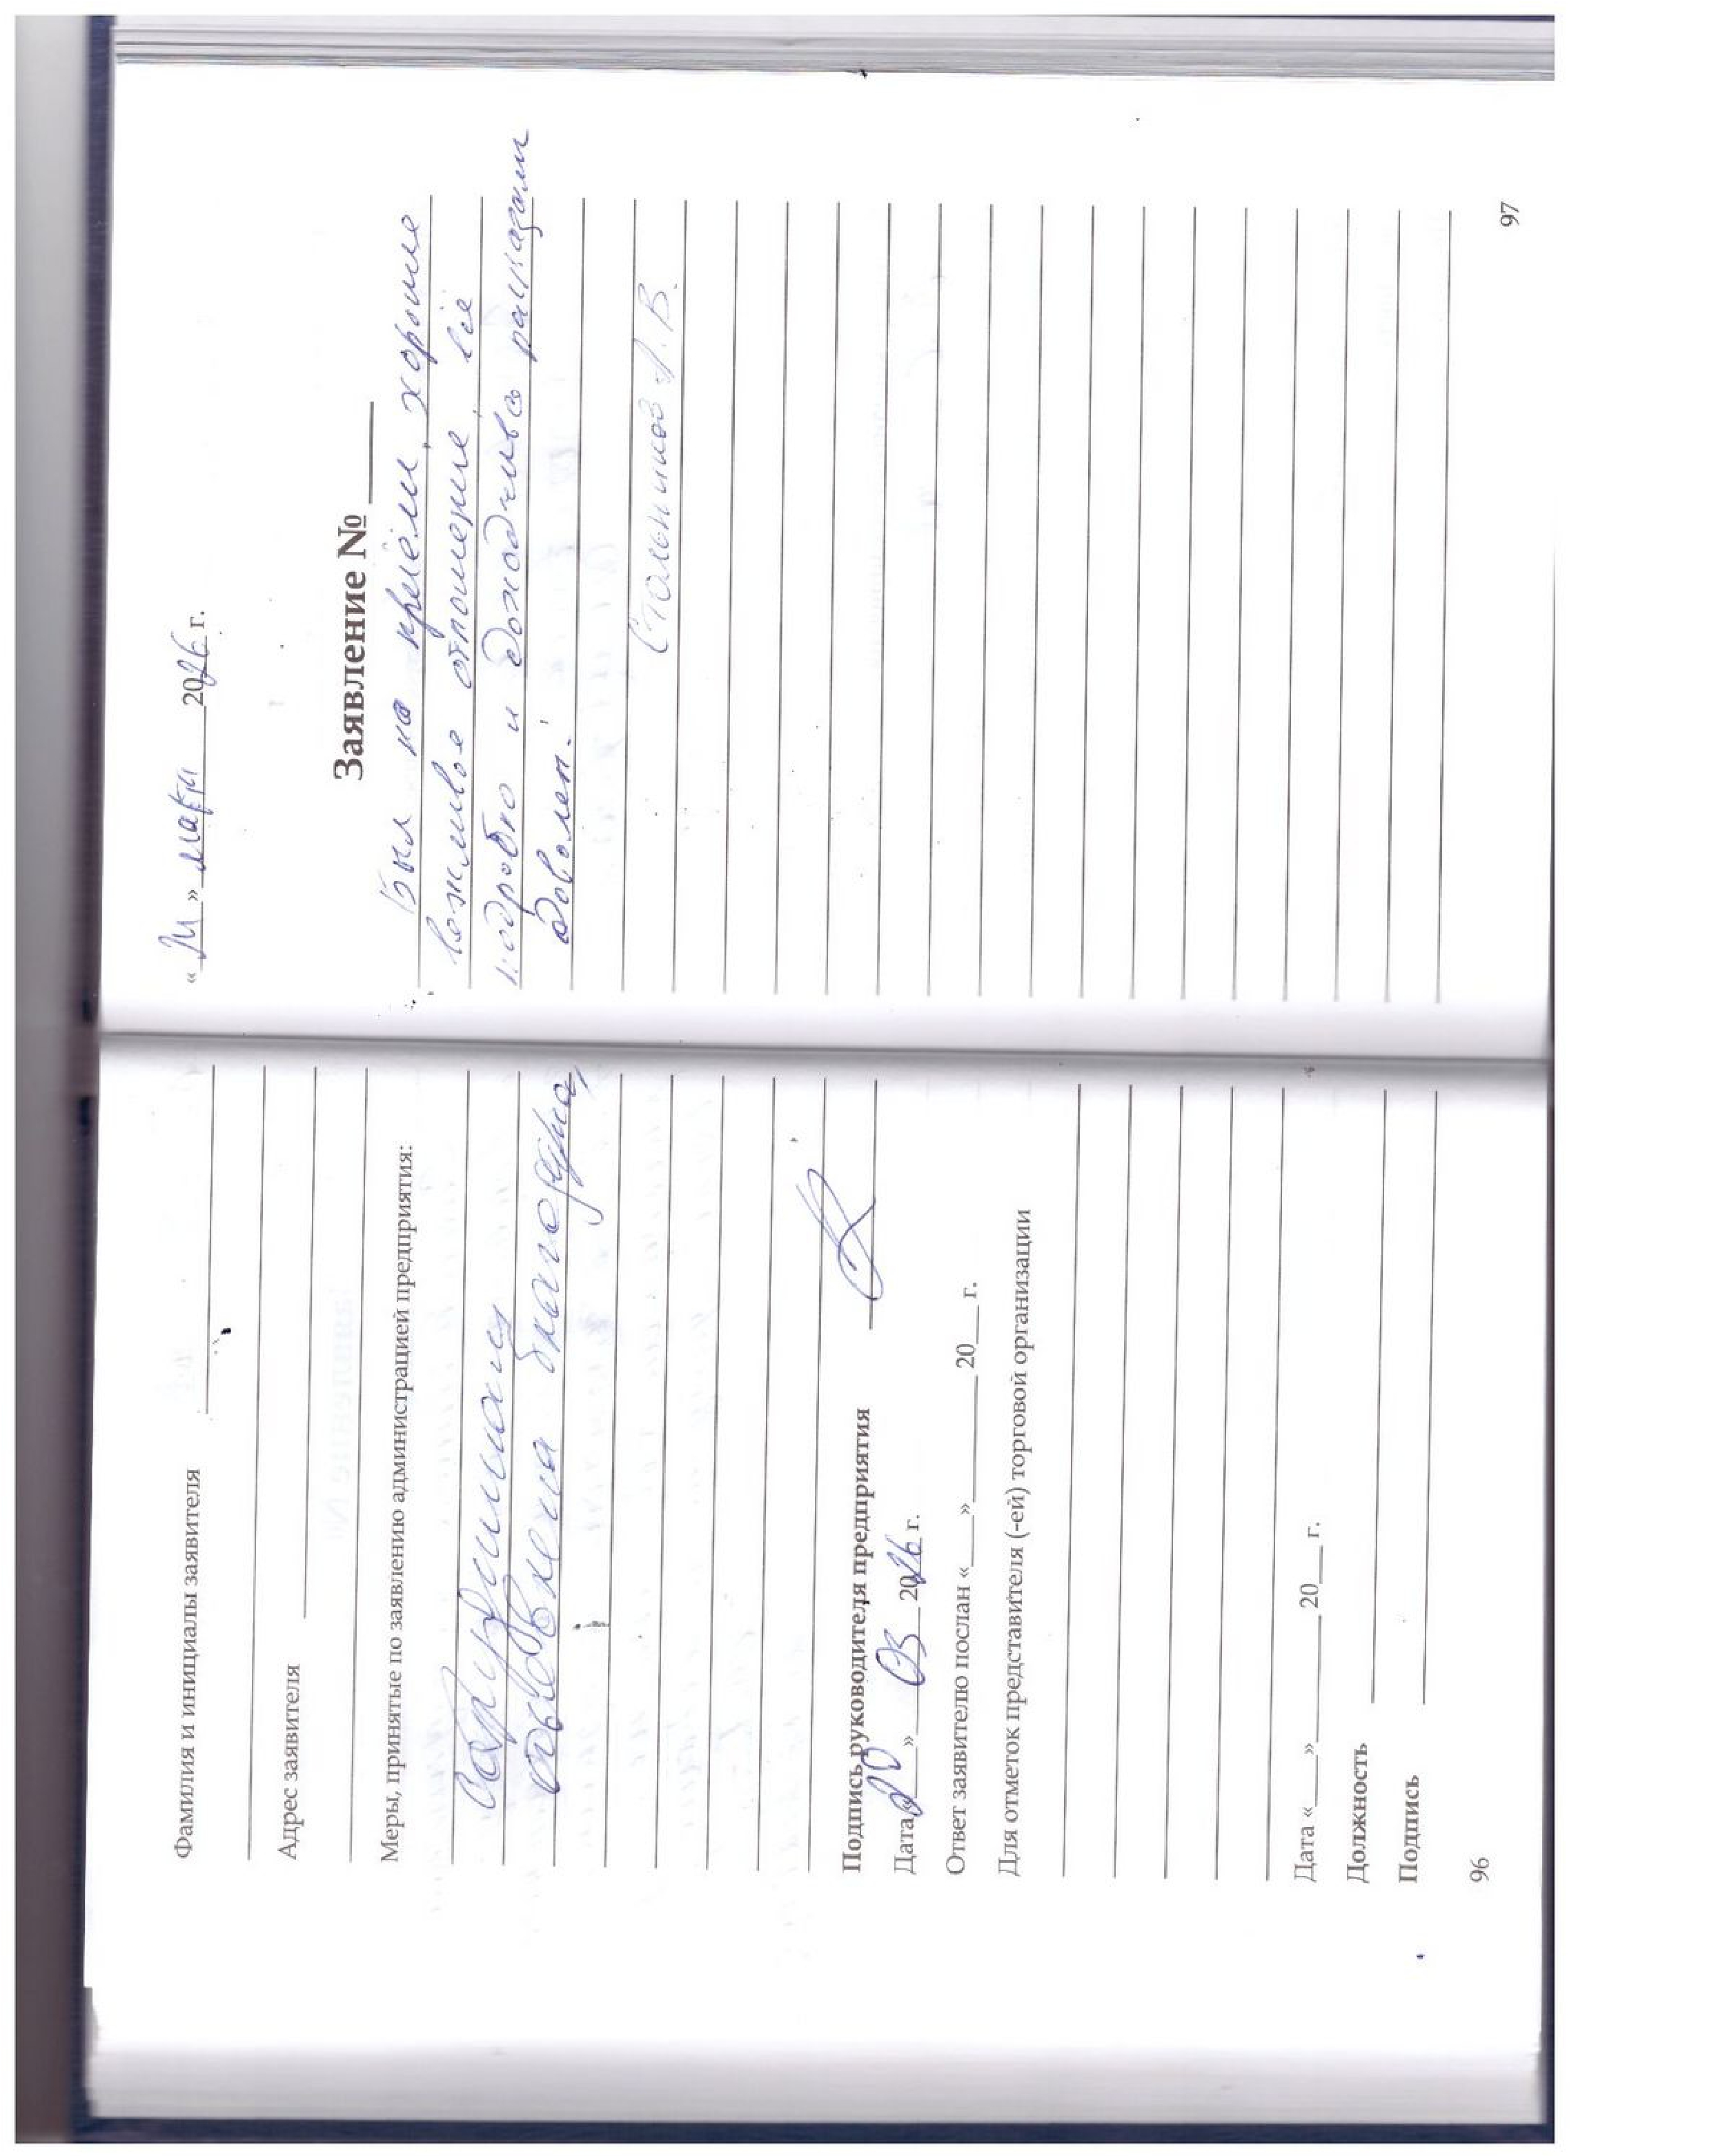 Фамилия и инициалы заявителя
Адрес заявителя
Меры, принятые по заявлению администрацией предприятия:
объявлена благодарность
Подпись руководителя предприятия
Дата «20» 03 2026 г.
Ответ заявителю послан «___» ______ 20___ г.
Для отметок представителя (-ей) торговой организации
Дата «___» ______ 20___ г.
Должность
Подпись
96
«__» марта 2026 г.
Заявление № ____
Был на приёме, хорошие
вежливое отношение, всё
подробно и доходчиво рассказали
доволен.
А. В.
97